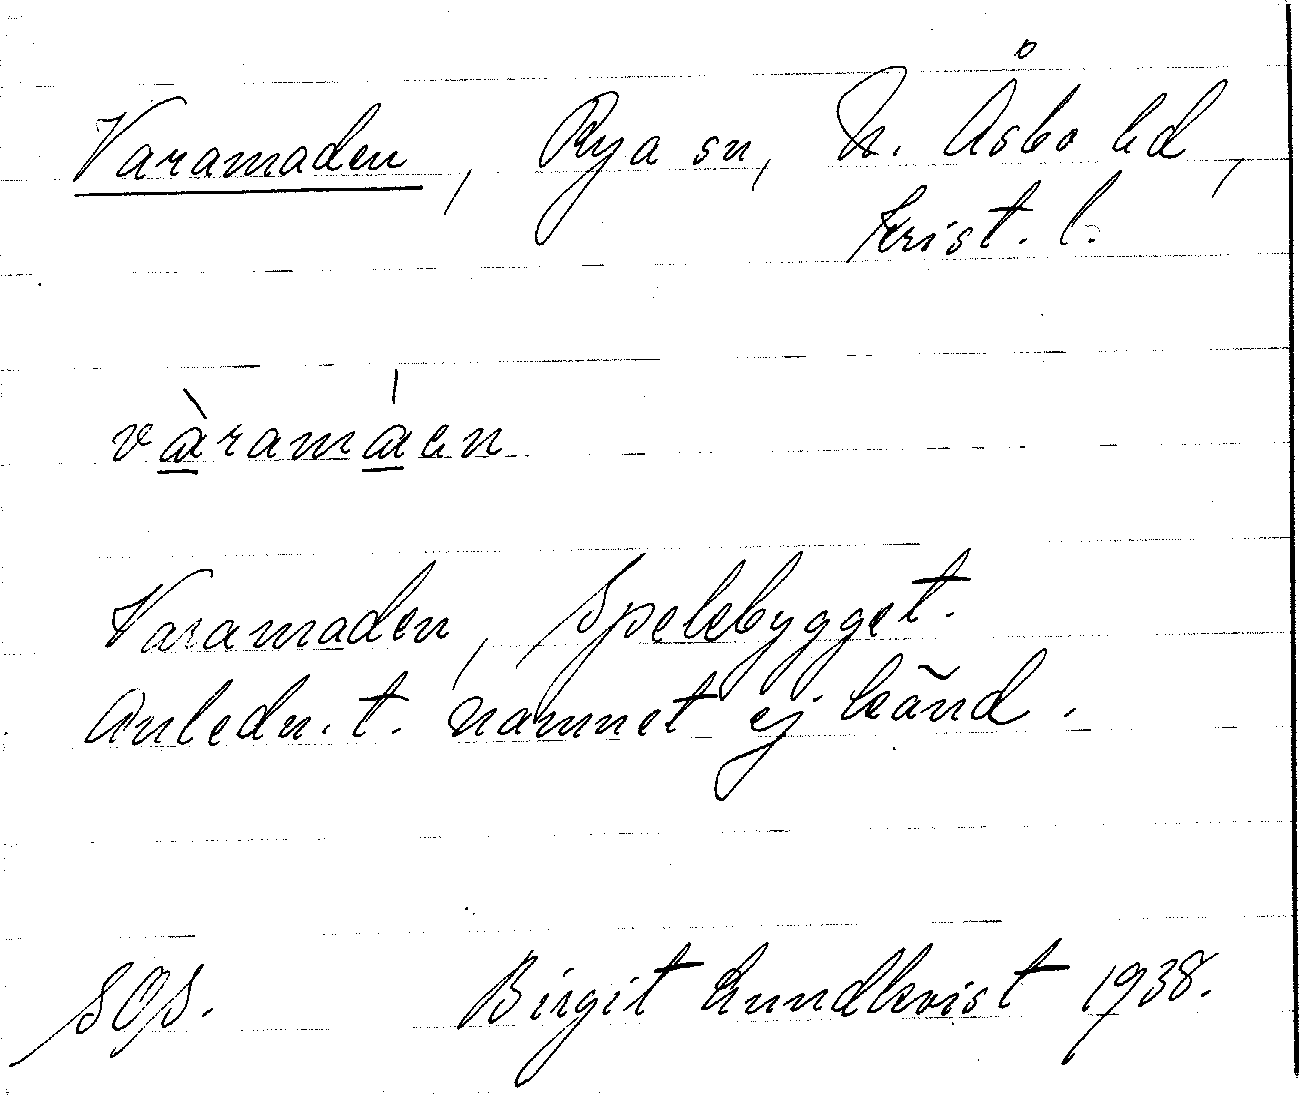 Varamaden, Rya sn, N. Åsbo hd,
Krist. l.
vàramáen
Varamaden, Spelebygget.
Anledn. t. namnet ej känd.
SOS. Birgit Lundkvist 1938.